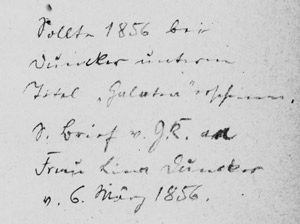 Sollte 1856 bei
Duncker unterm
Titel „Galatea“ erscheinen.
S. Brief v. G. K. an
Frau Lina Duncker
v. 6. März 1856.